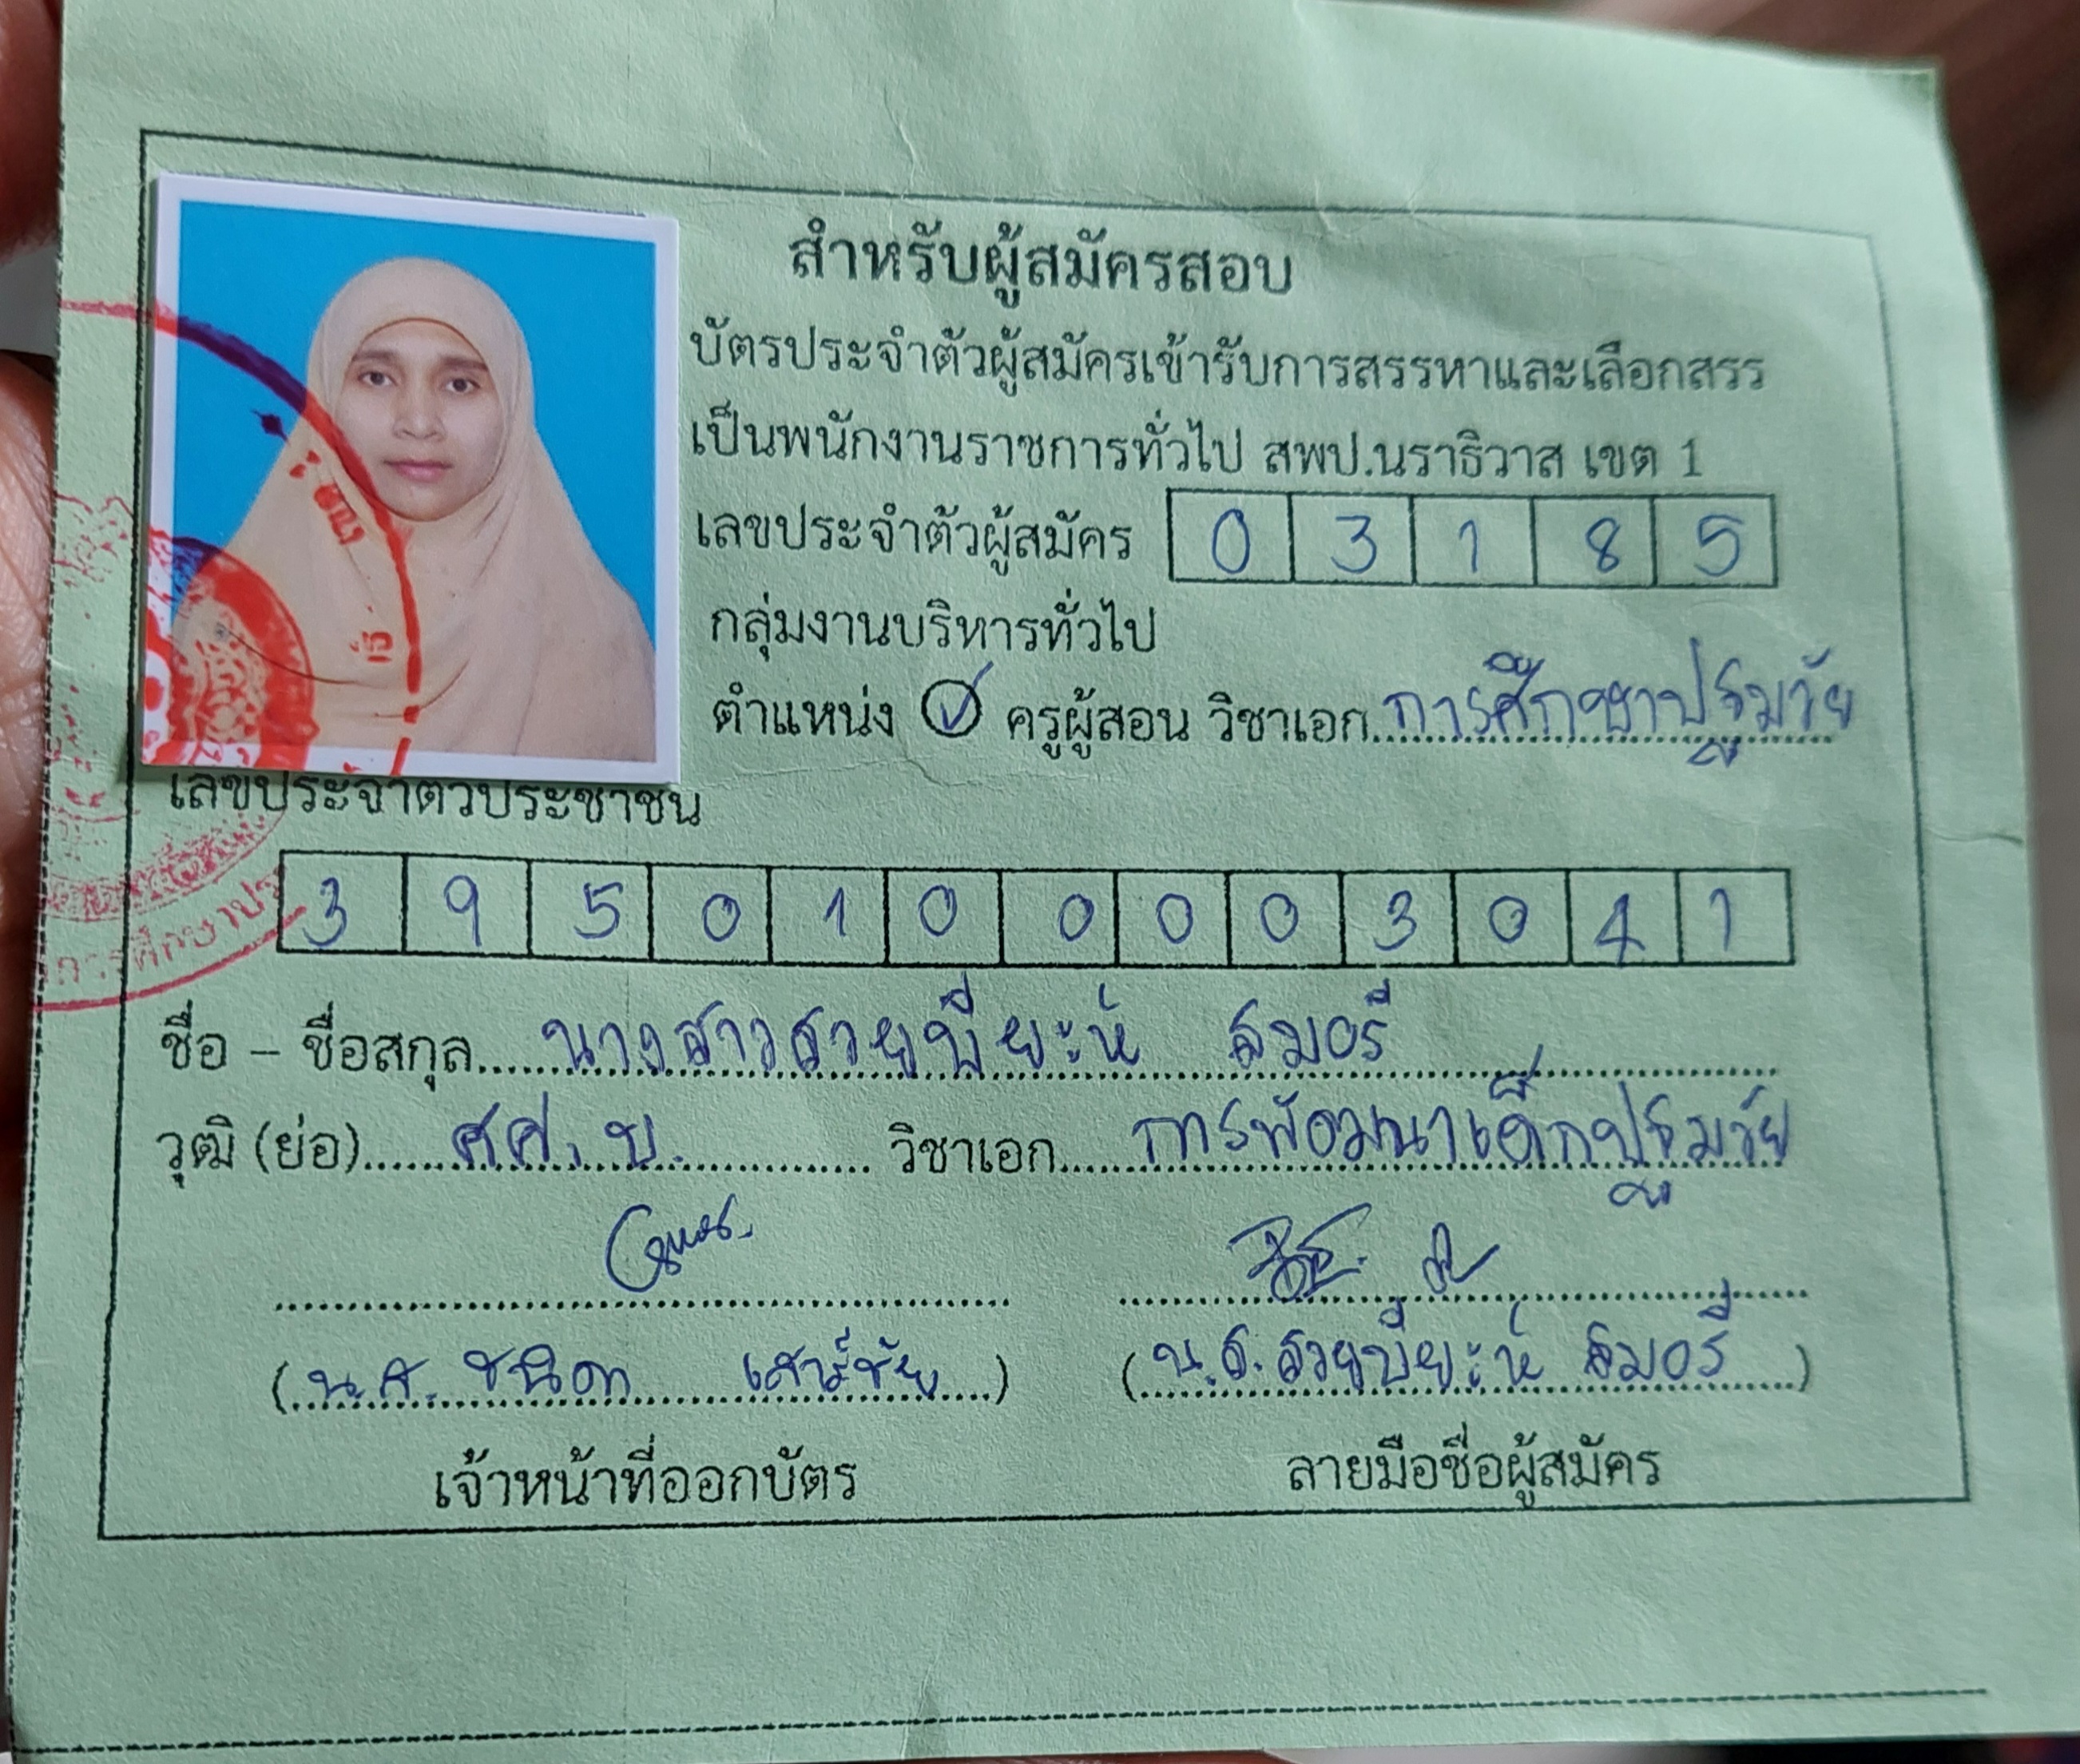 สำหรับผู้สมัครสอบ
บัตรประจำตัวผู้สมัครเข้ารับการสรรหาและเลือกสรร
เป็นพนักงานราชการทั่วไป สพป.นราธิวาส เขต 1
เลขประจำตัวผู้สมัคร 0 3 1 8 5
กลุ่มงานบริหารทั่วไป
ตำแหน่ง ครูผู้สอน วิชาเอก การศึกษาปฐมวัย
เลขประจำตัวประชาชน
3 9 5 0 1 0 0 0 0 3 0 4 1
ชื่อ - ชื่อสกุล นางสาวสวยบียะห์ สมอรี
วุฒิ (ย่อ) ศศ.บ. วิชาเอก การพัฒนาเด็กปฐมวัย
(น.ส. ชนิดา เสาร์ชัย) (น.ส.สวยบียะห์ สมอรี)
เจ้าหน้าที่ออกบัตร ลายมือชื่อผู้สมัคร
การศึกษาประ